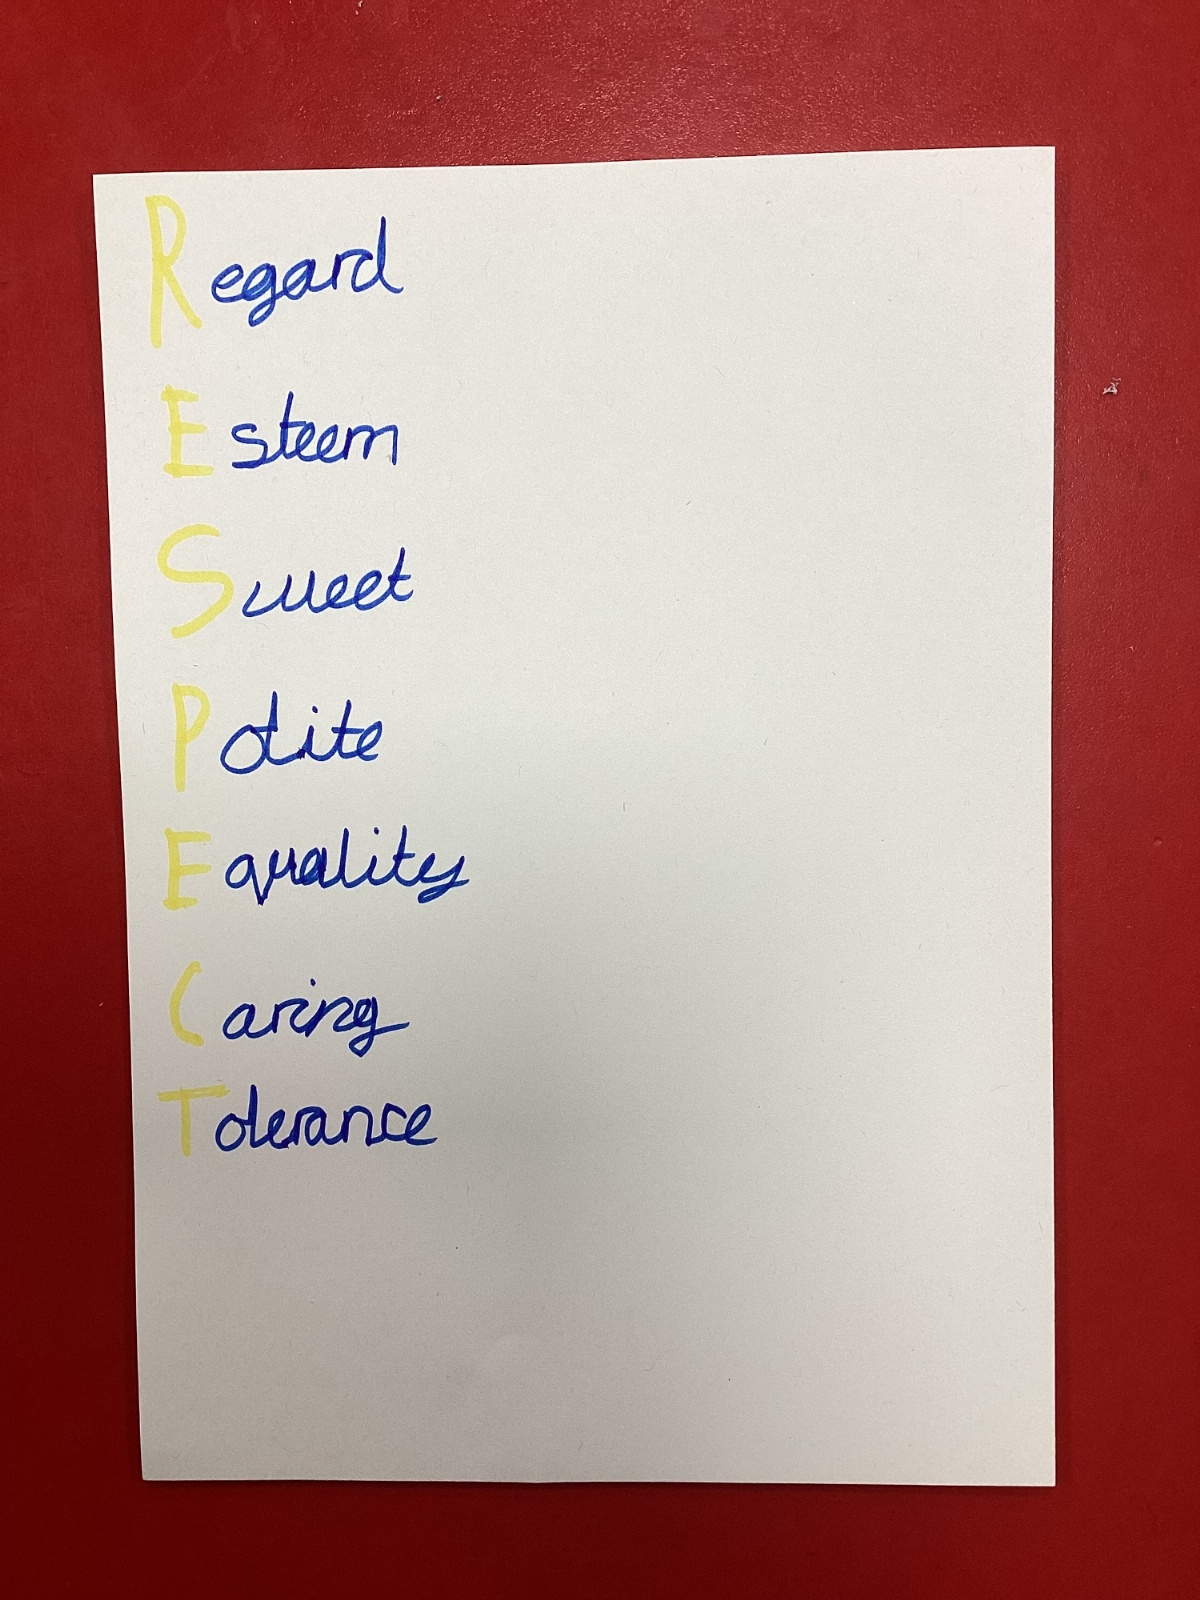 Regard
Esteem
Sweet
Polite
Equality
Caring
Tolerance